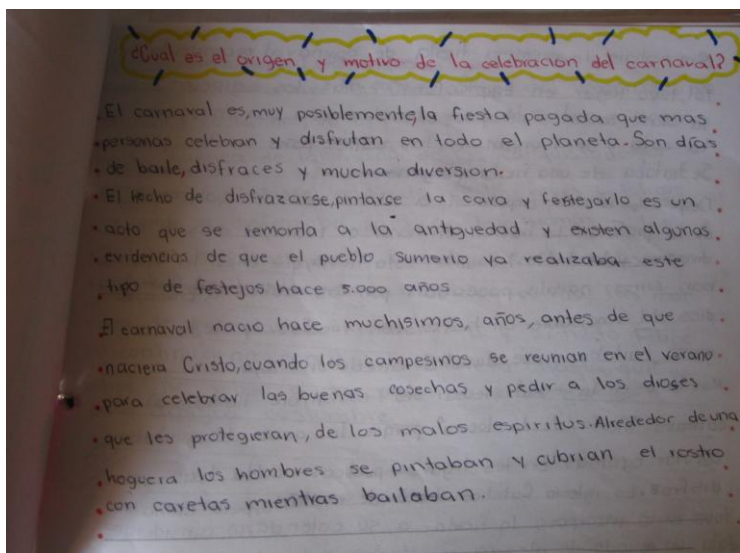 ¿Cual es el origen y motivo de la celebracion del carnaval?
El carnaval es, muy posiblemente, la fiesta pagada que mas
personas celebran y disfrutan en todo el planeta. Son días
de baile, disfraces y mucha diversion.
El hecho de disfrazarse, pintarse la cara, y festejarlo es un
acto que se remonta a la antiguedad y existen algunas
evidencias de que el pueblo sumerio ya realizaba este
tipo de festejos hace 5.000 años
El carnaval nacio hace muchisimos, años, antes de que
naciera Cristo, cuando los campesinos se reunian en el verano
para celebrar las buenas cosechas y pedir a los dioses
que les protegieran, de los malos espiritus. Alrededor de una
hoguera los hombres se pintaban y cubrian el rostro
con caretas mientras bailaban.